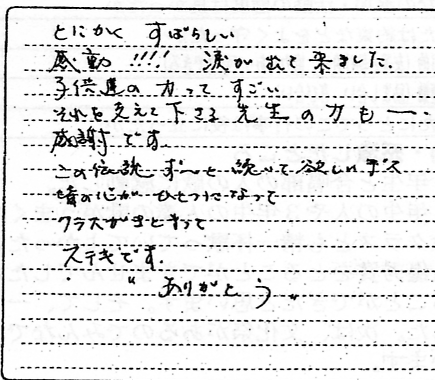 とにかく すばらしい
感動 !!!! 涙が出て来ました.
子供達の力って すごい
それを支えて下さる 先生の力も ー.
感謝です.
この伝説 ず〜と続いて欲しいデス
皆の心が ひとつになって
クラスがまとまって
ステキです.
“ ありがとう „